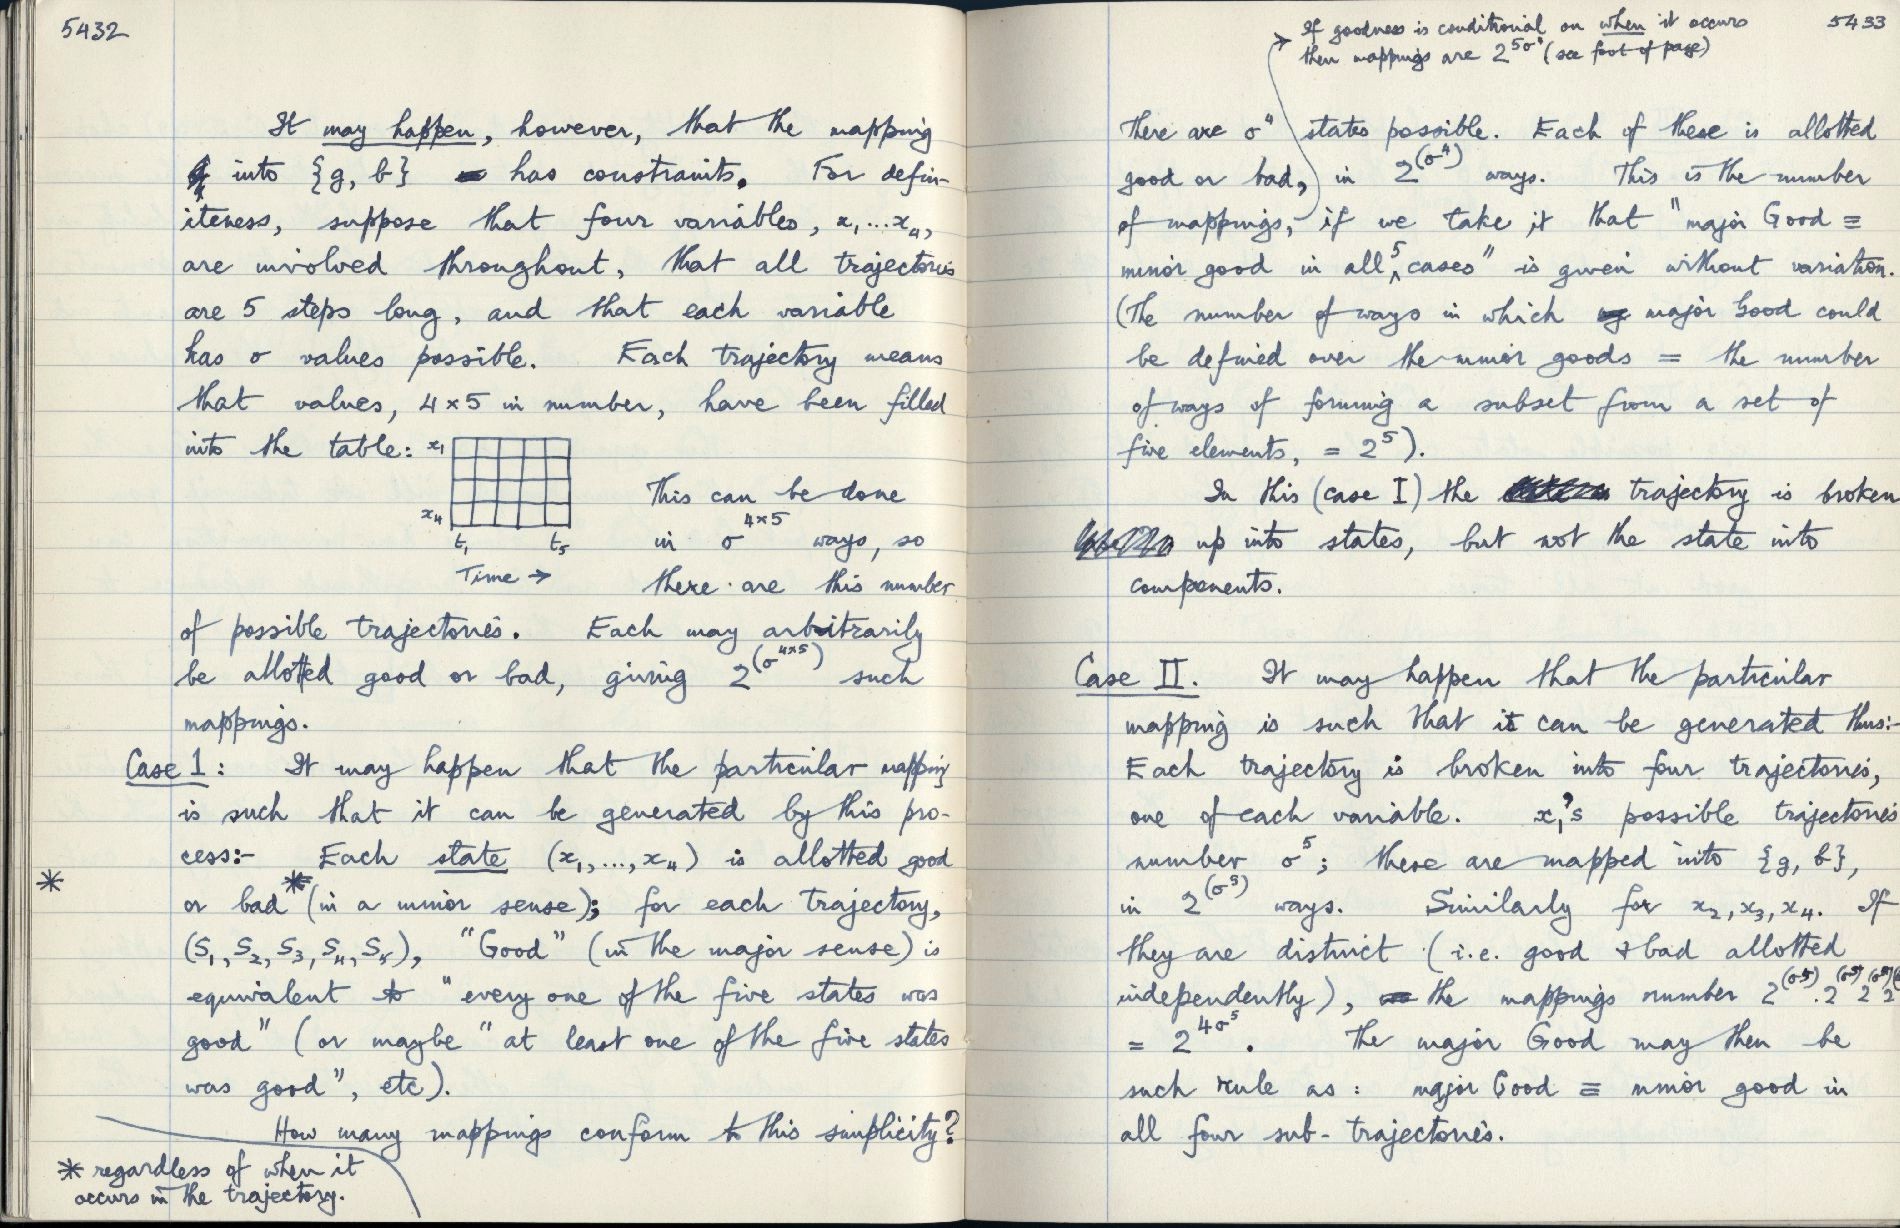 5432
It may happen, however, that the mapping
into {g, b} has constraints. For defin-
iteness, suppose that four variables, x₁...x₄,
are involved throughout, that all trajectories
are 5 steps long, and that each variable
has σ values possible. Each trajectory means
that values, 4×5 in number, have been filled
into the table: x₁
x₄
t₁ t₅
Time →
This can be done
in σ^4×5 ways, so
there are this number
of possible trajectories. Each may arbitrarily
be allotted good or bad, giving 2^(σ^4×5) such
mappings.
Case 1: It may happen that the particular mapping
is such that it can be generated by this pro-
cess:- Each state (x₁,...,x₄) is allotted good
* or bad* (in a minor sense); for each trajectory,
(S₁, S₂, S₃, S₄, S₅), "Good" (in the major sense) is
equivalent to "every one of the five states was
good" (or maybe "at least one of the five states
was good", etc).
How many mappings conform to this simplicity?
* regardless of when it
occurs in the trajectory.
5433
→ If goodness is conditional on when it occurs
then mappings are 2^5σ^4 (see foot of page)
There are σ^4 states possible. Each of these is allotted
good or bad, in 2^(σ^4) ways. This is the number
of mappings, if we take it that "major Good ≡
minor good in all 5 cases" is given without variation.
(The number of ways in which major Good could
be defined over the minor goods = the number
of ways of forming a subset from a set of
five elements, = 2^5).
In this (case I) the trajectory is broken
up into states, but not the state into
components.
Case II. It may happen that the particular
mapping is such that it can be generated thus:-
Each trajectory is broken into four trajectories,
one of each variable. x₁'s possible trajectories
number σ^5; these are mapped into {g, b},
in 2^(σ^5) ways. Similarly for x₂, x₃, x₄. If
they are distinct (i.e. good & bad allotted
independently), the mappings number 2^(σ^5).2^(σ^5) 2^(σ^5) 2^(σ
= 2^4σ^5. The major Good may then be
such rule as: major Good ≡ minor good in
all four sub-trajectories.